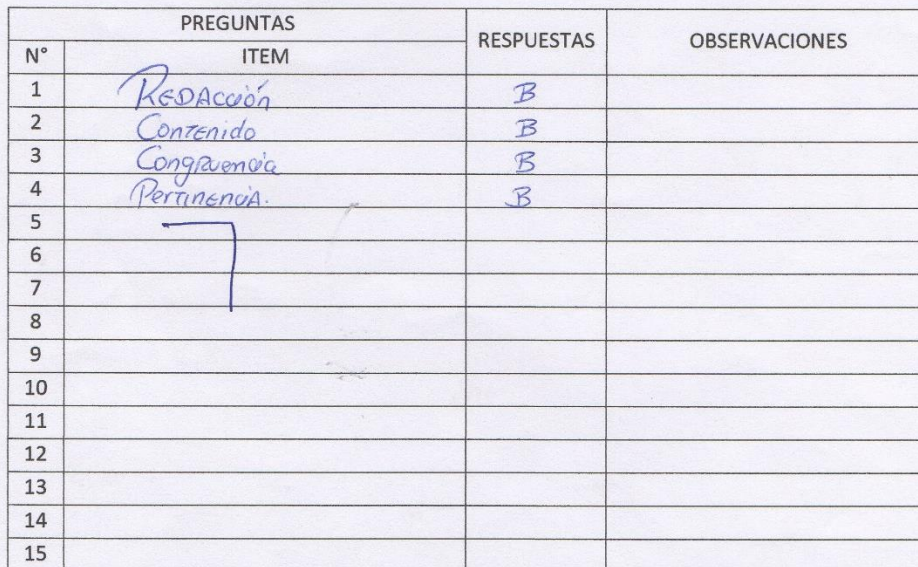 PREGUNTAS RESPUESTAS OBSERVACIONES
N° ITEM
1 REDAcción B
2 Contenido B
3 Congruencia B
4 Pertinencia. B
5
6
7
8
9
10
11
12
13
14
15